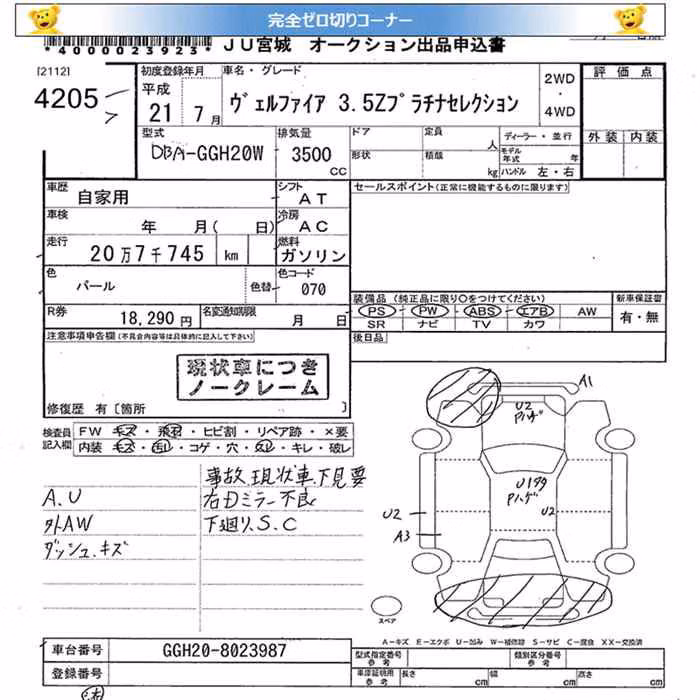 完全ゼロ切りコーナー
*4000023923* ＪＵ宮城 オークション出品申込書
[2112]
4205
初度登録年月 車名・グレード 2WD・4WD 評価点
平成 21 7月 ヴェルファイア 3.5Zプラチナセレクション
型式 排気量 ドア 定員 人 ディーラー・並行 外装 内装
DBA-GGH20W 3500 CC 形状 積酸 kg モデル年式 年 ハンドル 左・右
車歴 自家用 シフト AT セールスポイント(正常に機能するものに限ります)
車検 年 月( 日) 冷房 AC
走行 20万7千745 km 燃料 ガソリン
色 パール 色替 色コード 070
装備品 (純正品に限り○をつけてください) 新車保証書
R券 18,290円 名変通知期限 月 日 PS PW ABS エアB AW 有・無
SR ナビ TV カワ
注意事項申告欄(不具合内容等は具体的に記入して下さい) 後日品
現状車につき
ノークレーム
修復歴 有〔箇所 〕
検査員記入欄 FW キズ・飛石・ヒビ割・リペア跡・×要
内装 キズ・汚れ・コゲ・穴・スレ・キレ・破レ
事故.現状車.下見要
A.U 右Dミラー不良
外AW 下廻り.S.C
ダッシュ.キズ
A1
U2
Pハゲ
U1タタ
Pハゲ
U2
U2
A3
スペア
A-キズ E-エクボ U-凹み W-補修跡 S-サビ C-腐食 XX-交換済
車台番号 GGH20-8023987 型式指定番号 参考 類別区分番号 参考
登録番号 車庫証明用 参考 長さ cm 幅 cm 高さ cm